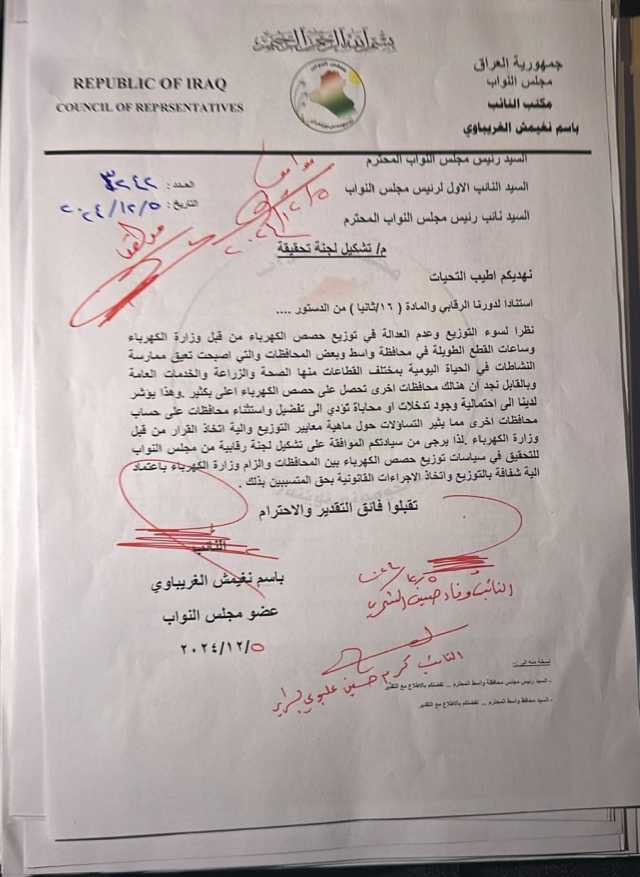 بسم الله الرحمن الرحيم
REPUBLIC OF IRAQ
COUNCIL OF REPRSENTATIVES
جمهورية العراق
مجلس النواب
مكتب النائب
باسم نغيمش الغريباوي
العدد : ٣٢٤٢
التاريخ : ٢٠٢٤/١٢/٥
السيد رئيس مجلس النواب المحترم
السيد النائب الاول لرئيس مجلس النواب
السيد نائب رئيس مجلس النواب المحترم
م/ تشكيل لجنة تحقيقة
نهديكم اطيب التحيات
استنادا لدورنا الرقابي والمادة ( ١٦/ثانيا ) من الدستور ....
نظرا لسوء التوزيع وعدم العدالة في توزيع حصص الكهرباء من قبل وزارة الكهرباء
وساعات القطع الطويلة في محافظة واسط وبعض المحافظات والتي اصبحت تعيق ممارسة
النشاطات في الحياة اليومية بمختلف القطاعات منها الصحة والزراعة والخدمات العامة
وبالقابل نجد ان هنالك محافظات اخرى تحصل على حصص الكهرباء اعلى بكثير .وهذا يوشر
لدينا الى احتمالية وجود تدخلات او محاباة تؤدي الى تفضيل واستثناء محافظات على حساب
محافظات اخرى مما يثير التساؤلات حول ماهية معايير التوزيع والية اتخاذ القرار من قبل
وزارة الكهرباء .لذا يرجى من سيادتكم الموافقة على تشكيل لجنة رقابية من مجلس النواب
للتحقيق في سياسات توزيع حصص الكهرباء بين المحافظات والزام وزارة الكهرباء باعتماد
الية شفافة بالتوزيع واتخاذ الاجراءات القانونية بحق المتسببين بذلك .
تقبلوا فائق التقدير والاحترام
النائب
باسم نغيمش الغريباوي
عضو مجلس النواب
٢٠٢٤/١٢/٥
النائب كريم حسين عليوي
نسخة منه الى :-
- السيد رئيس مجلس محافظة واسط المحترم ... تفضلكم بالاطلاع مع التقدير
- السيد محافظ واسط المحترم .. تفضلكم بالاطلاع مع التقدير